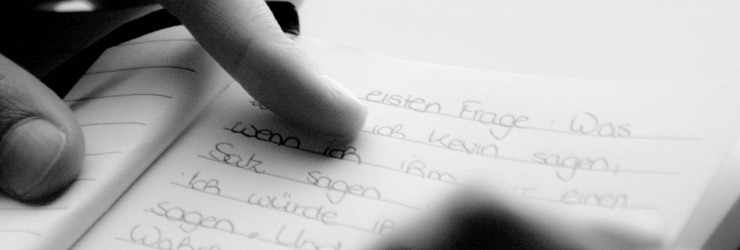 ersten Frage: Was
wenn ich ich Kevin sagen,
Satz sagen ihm einen
Ich würde
sagen. Und